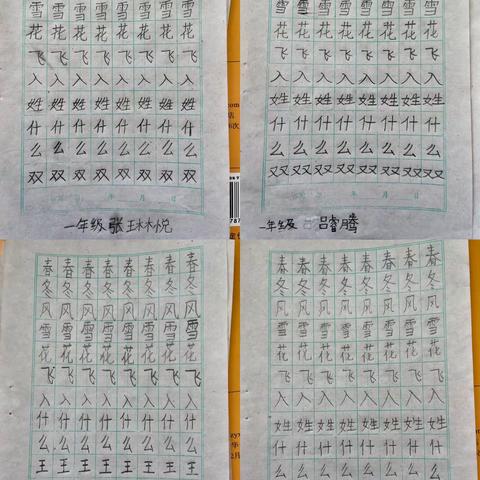 雪雪雪雪雪雪雪雪
花花花花花花花花
飞飞飞飞飞飞飞飞
入入入入入入入入
姓姓姓姓姓姓姓姓
什什什什什什什什
么么么么么么么么
双双双双双双双双
年 月 日
一年级 张琳悦
雪雪雪雪雪雪雪雪
花花花花花花花花
飞飞飞飞飞飞飞飞
入入入入入入入入
姓姓姓姓姓姓姓姓
什什什什什什什什
么么么么么么么么
双双双双双双双双
月 日
一年级 吕睿腾
春春春春春春春春
冬冬冬冬冬冬冬冬
风风风风风风风风
雪雪雪雪雪雪雪雪
花花花花花花花花
飞飞飞飞飞飞飞飞
入入入入入入入入
什什什什什什什什
么么么么么么么么
王王王王王王王王
春春春春春春春春
冬冬冬冬冬冬冬冬
风风风风风风风风
雪雪雪雪雪雪雪雪
花花花花花花花花
飞飞飞飞飞飞飞飞
入入入入入入入入
姓姓姓姓姓姓姓姓
什什什什什什什什
么么么么么么么么